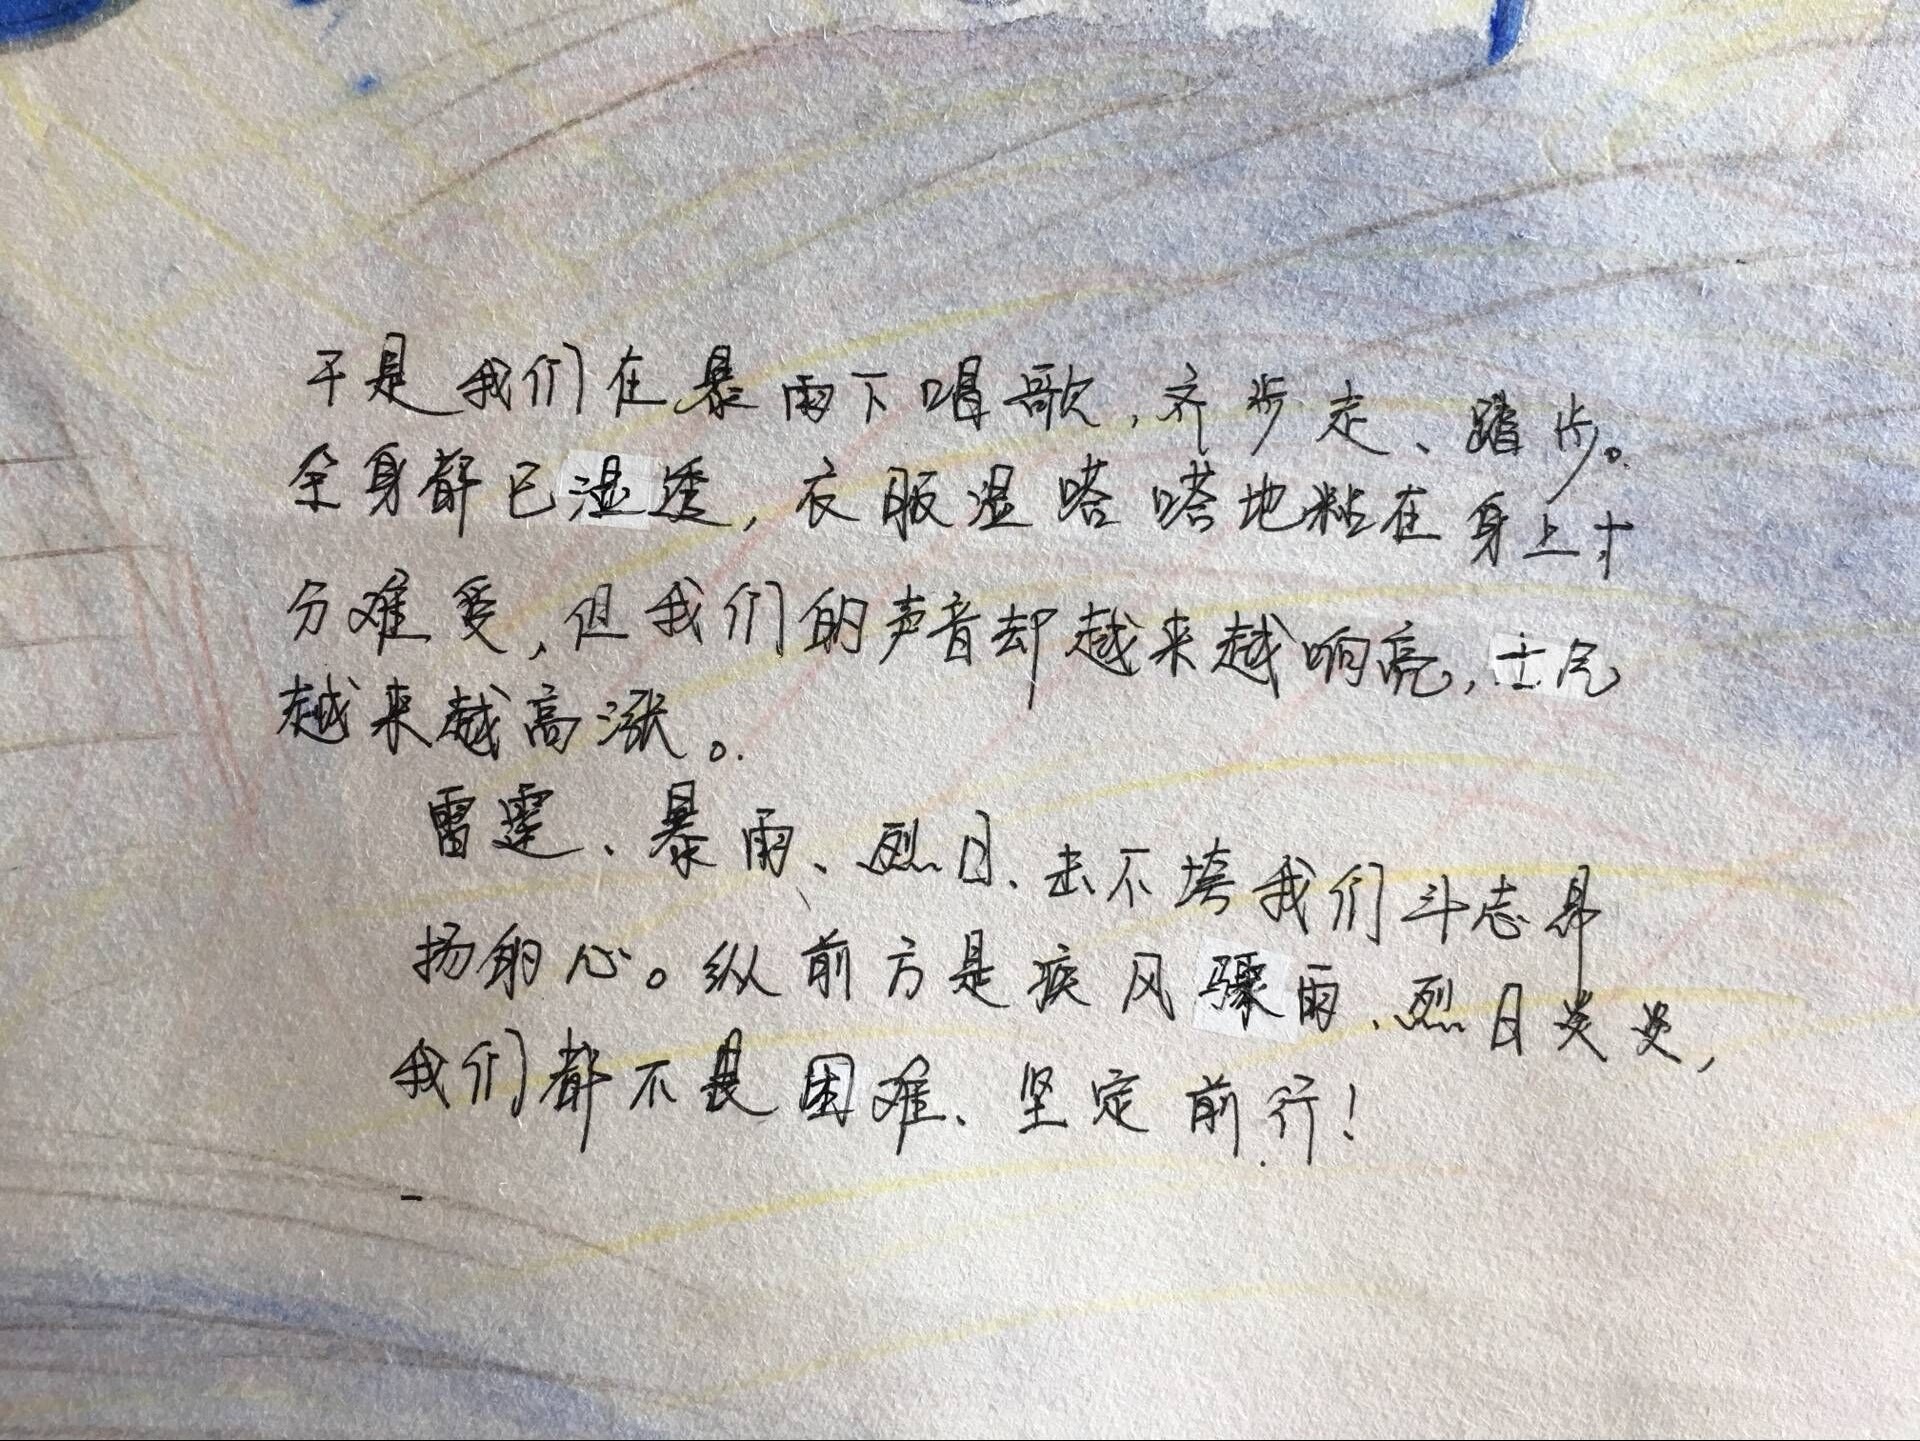 于是我们在暴雨下唱歌,齐步走、踏步。
全身都已湿透,衣服湿嗒嗒地粘在身上十
分难受,但我们的声音却越来越响亮,士气
越来越高涨。
雷霆、暴雨、烈日、击不垮我们斗志昂
扬的心。纵前方是疾风骤雨、烈日炎炎,
我们都不畏困难、坚定前行!